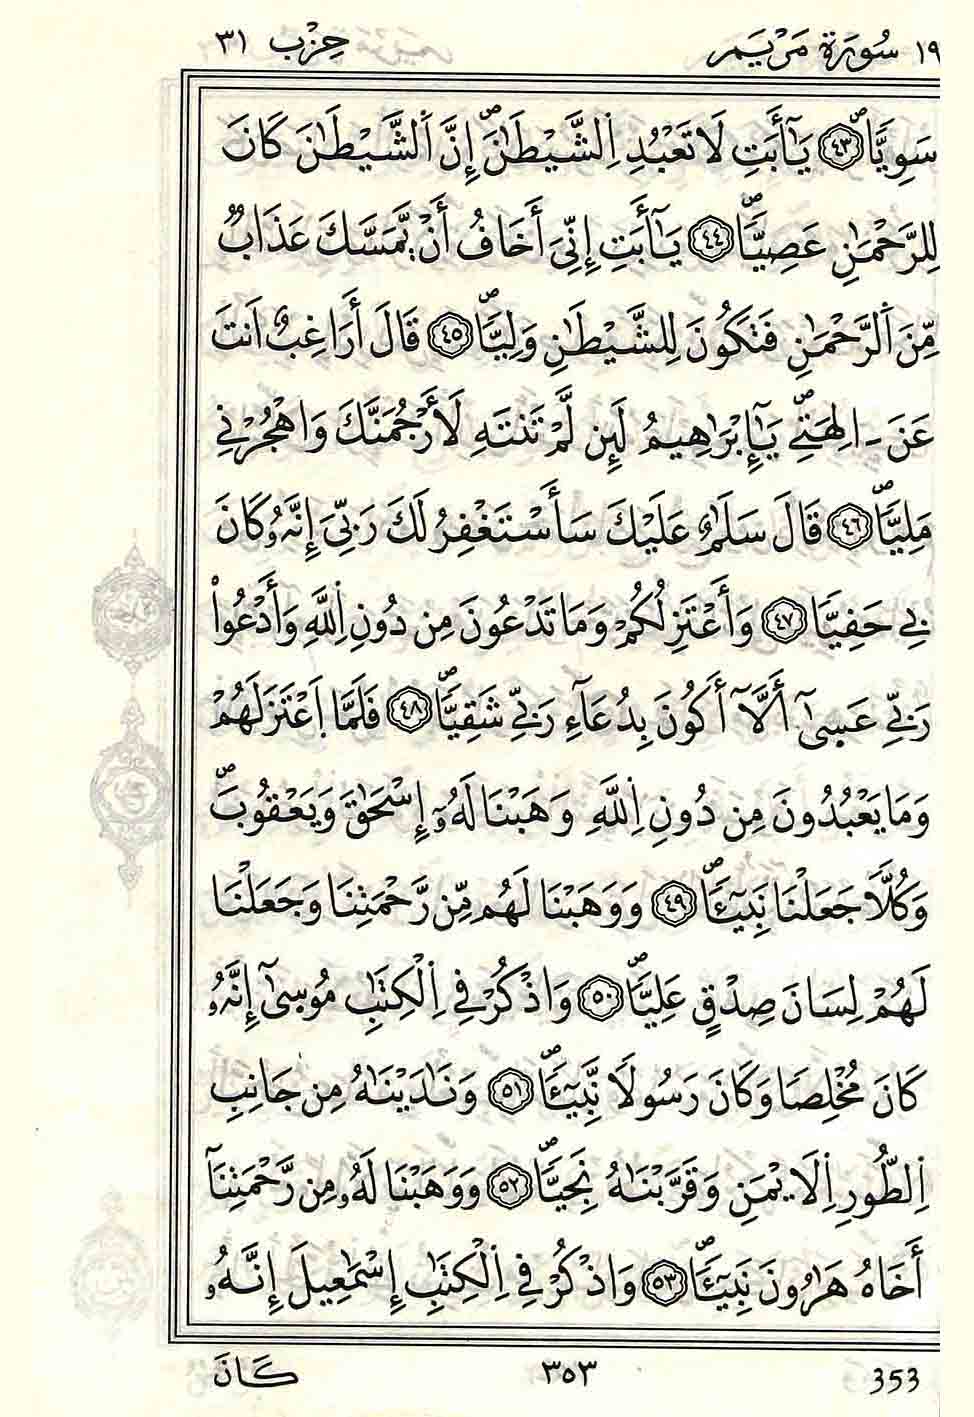 ١٩ سُورَةُ مَرْيَمَ حِزْب ٣١
سَوِيّاٗۖ ٤٣ يَٰٓأَبَتِ لَا تَعْبُدِ اِ۬لشَّيْطَٰنَۖ إِنَّ اَ۬لشَّيْطَٰنَ كَانَ
لِلرَّحْمَٰنِ عَصِيّاٗۖ ٤٤ يَٰٓأَبَتِ إِنِّيَ أَخَافُ أَنْ يَّمَسَّكَ عَذَابٞ
مِّنَ اَ۬لرَّحْمَٰنِ فَتَكُونَ لِلشَّيْطَٰنِ وَلِيّاٗۖ ٤٥ قَالَ أَرَاغِبٌ اَنتَ
عَنَ ـ اٰلِهَتِےۖ يَٰٓإِبْرَٰهِيمُ لَئِن لَّمْ تَنتَهِ لَأَرْجُمَنَّكَ وَاهْجُرْنِے
مَلِيّاٗۖ ٤٦ قَالَ سَلَٰمٌ عَلَيْكَ سَأَسْتَغْفِرُ لَكَ رَبِّيَ إِنَّهُۥ كَانَ
بِے حَفِيّاٗ ٤٧ وَأَعْتَزِلُكُمْ وَمَا تَدْعُونَ مِن دُونِ اِ۬للَّهِ وَأَدْعُواْ
رَبِّے عَسَىٰٓ أَلَّآ أَكُونَ بِدُعَآءِ رَبِّے شَقِيّاٗۖ ٤٨ فَلَمَّا اَ۪عْتَزَلَهُمْ
وَمَا يَعْبُدُونَ مِن دُونِ اِ۬للَّهِ وَهَبْنَا لَهُۥٓ إِسْحَٰقَ وَيَعْقُوبَۖ
وَكُلّاٗ جَعَلْنَا نَبِيٓـٔاٗۖ ٤٩ وَوَهَبْنَا لَهُم مِّن رَّحْمَتِنَا وَجَعَلْنَا
لَهُمْ لِسَانَ صِدْقٍ عَلِيّاٗۖ ٥٠ وَاذْكُرْ فِے اِ۬لْكِتَٰبِ مُوسَىٰٓ إِنَّهُۥ
كَانَ مُخْلِصاٗ وَكَانَ رَسُولاٗ نَّبِيٓـٔاٗۖ ٥١ وَنَٰدَيْنَٰهُ مِن جَانِبِ
اِ۬لطُّورِ اِ۬لَايْمَنِ وَقَرَّبْنَٰهُ نَجِيّاٗۖ ٥٢ وَوَهَبْنَا لَهُۥ مِن رَّحْمَتِنَآ
أَخَاهُ هَٰرُونَ نَبِيٓـٔاٗۖ ٥٣ وَاذْكُرْ فِے اِ۬لْكِتَٰبِ إِسْمَٰعِيلَ إِنَّهُۥ
353 ٣٥٣ كَانَ